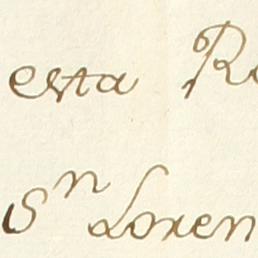 esta R
Sn Loren